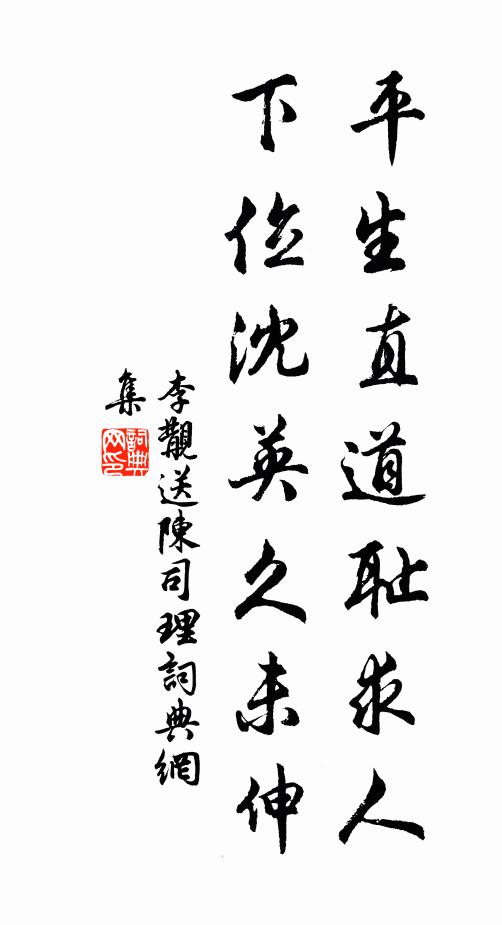 平生直道耻求人
下位沈英久未伸
李覯送陳司理詞典網
集
詞典网印